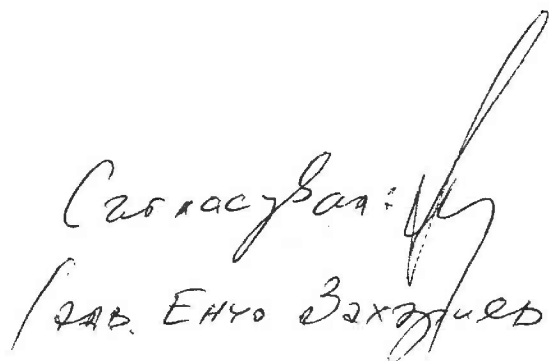 Съгласувал:
/адв. Енчо Захариев